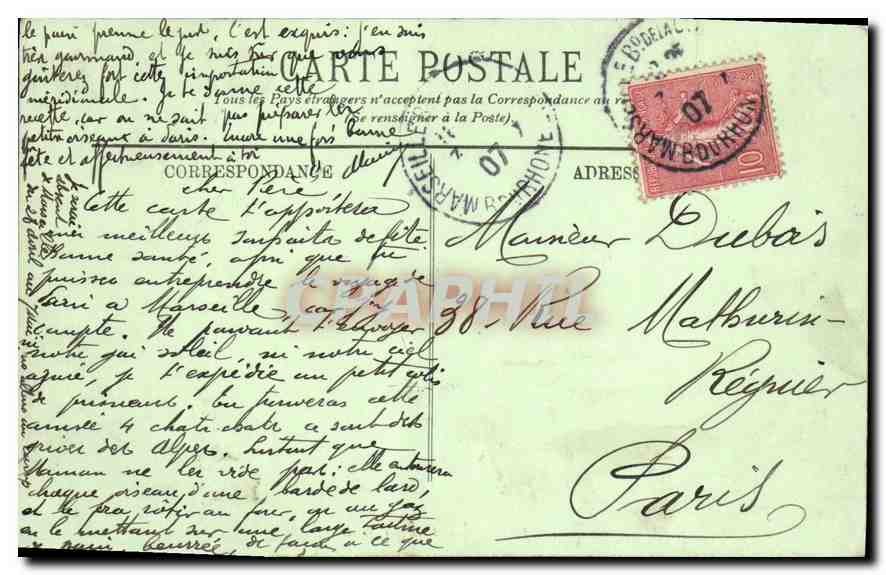 le pain prenne le jus, c'est exquis : j'en suis
très gourmand et je suis sûr que vous
goûterez fort cette importation
méridionale. Je te donne cette
recette, car on ne sait pas préparer les
petits oiseaux à Paris. Encore une fois bonne
fête et affectueusement à toi
CARTE POSTALE
Tous les Pays étrangers n'acceptent pas la Correspondance au
(Se renseigner à la Poste).
CORRESPONDANCE
ADRES
MARSEILLE
07
MARSEILLE
07
10
cher Père
Cette carte t'apportera
mes meilleurs souhaits de fête
Bonne santé, afin que tu
puisses entreprendre le voyage de
Paris à Marseille, car j'y
compte. Ne pouvant t'envoyer
notre gai soleil, ni notre ciel
azuré, je t'expédie un petit colis
de Tu trouveras cette
année 4 ce sont des
grives des Alpes. Surtout que
Maman ne les vide pas : elle entourera
chaque oiseau d'une barde de lard,
et le fera rôtir au four, ou au gaz
en le mettant sur une large tartine
de pain, beurrée, de façon à ce que
Je serai
absent
de Marseille
du 28 avril au
Monsieur Dubois
38 - Rue Mathurin-
Régnier
Paris
CPAPHIL